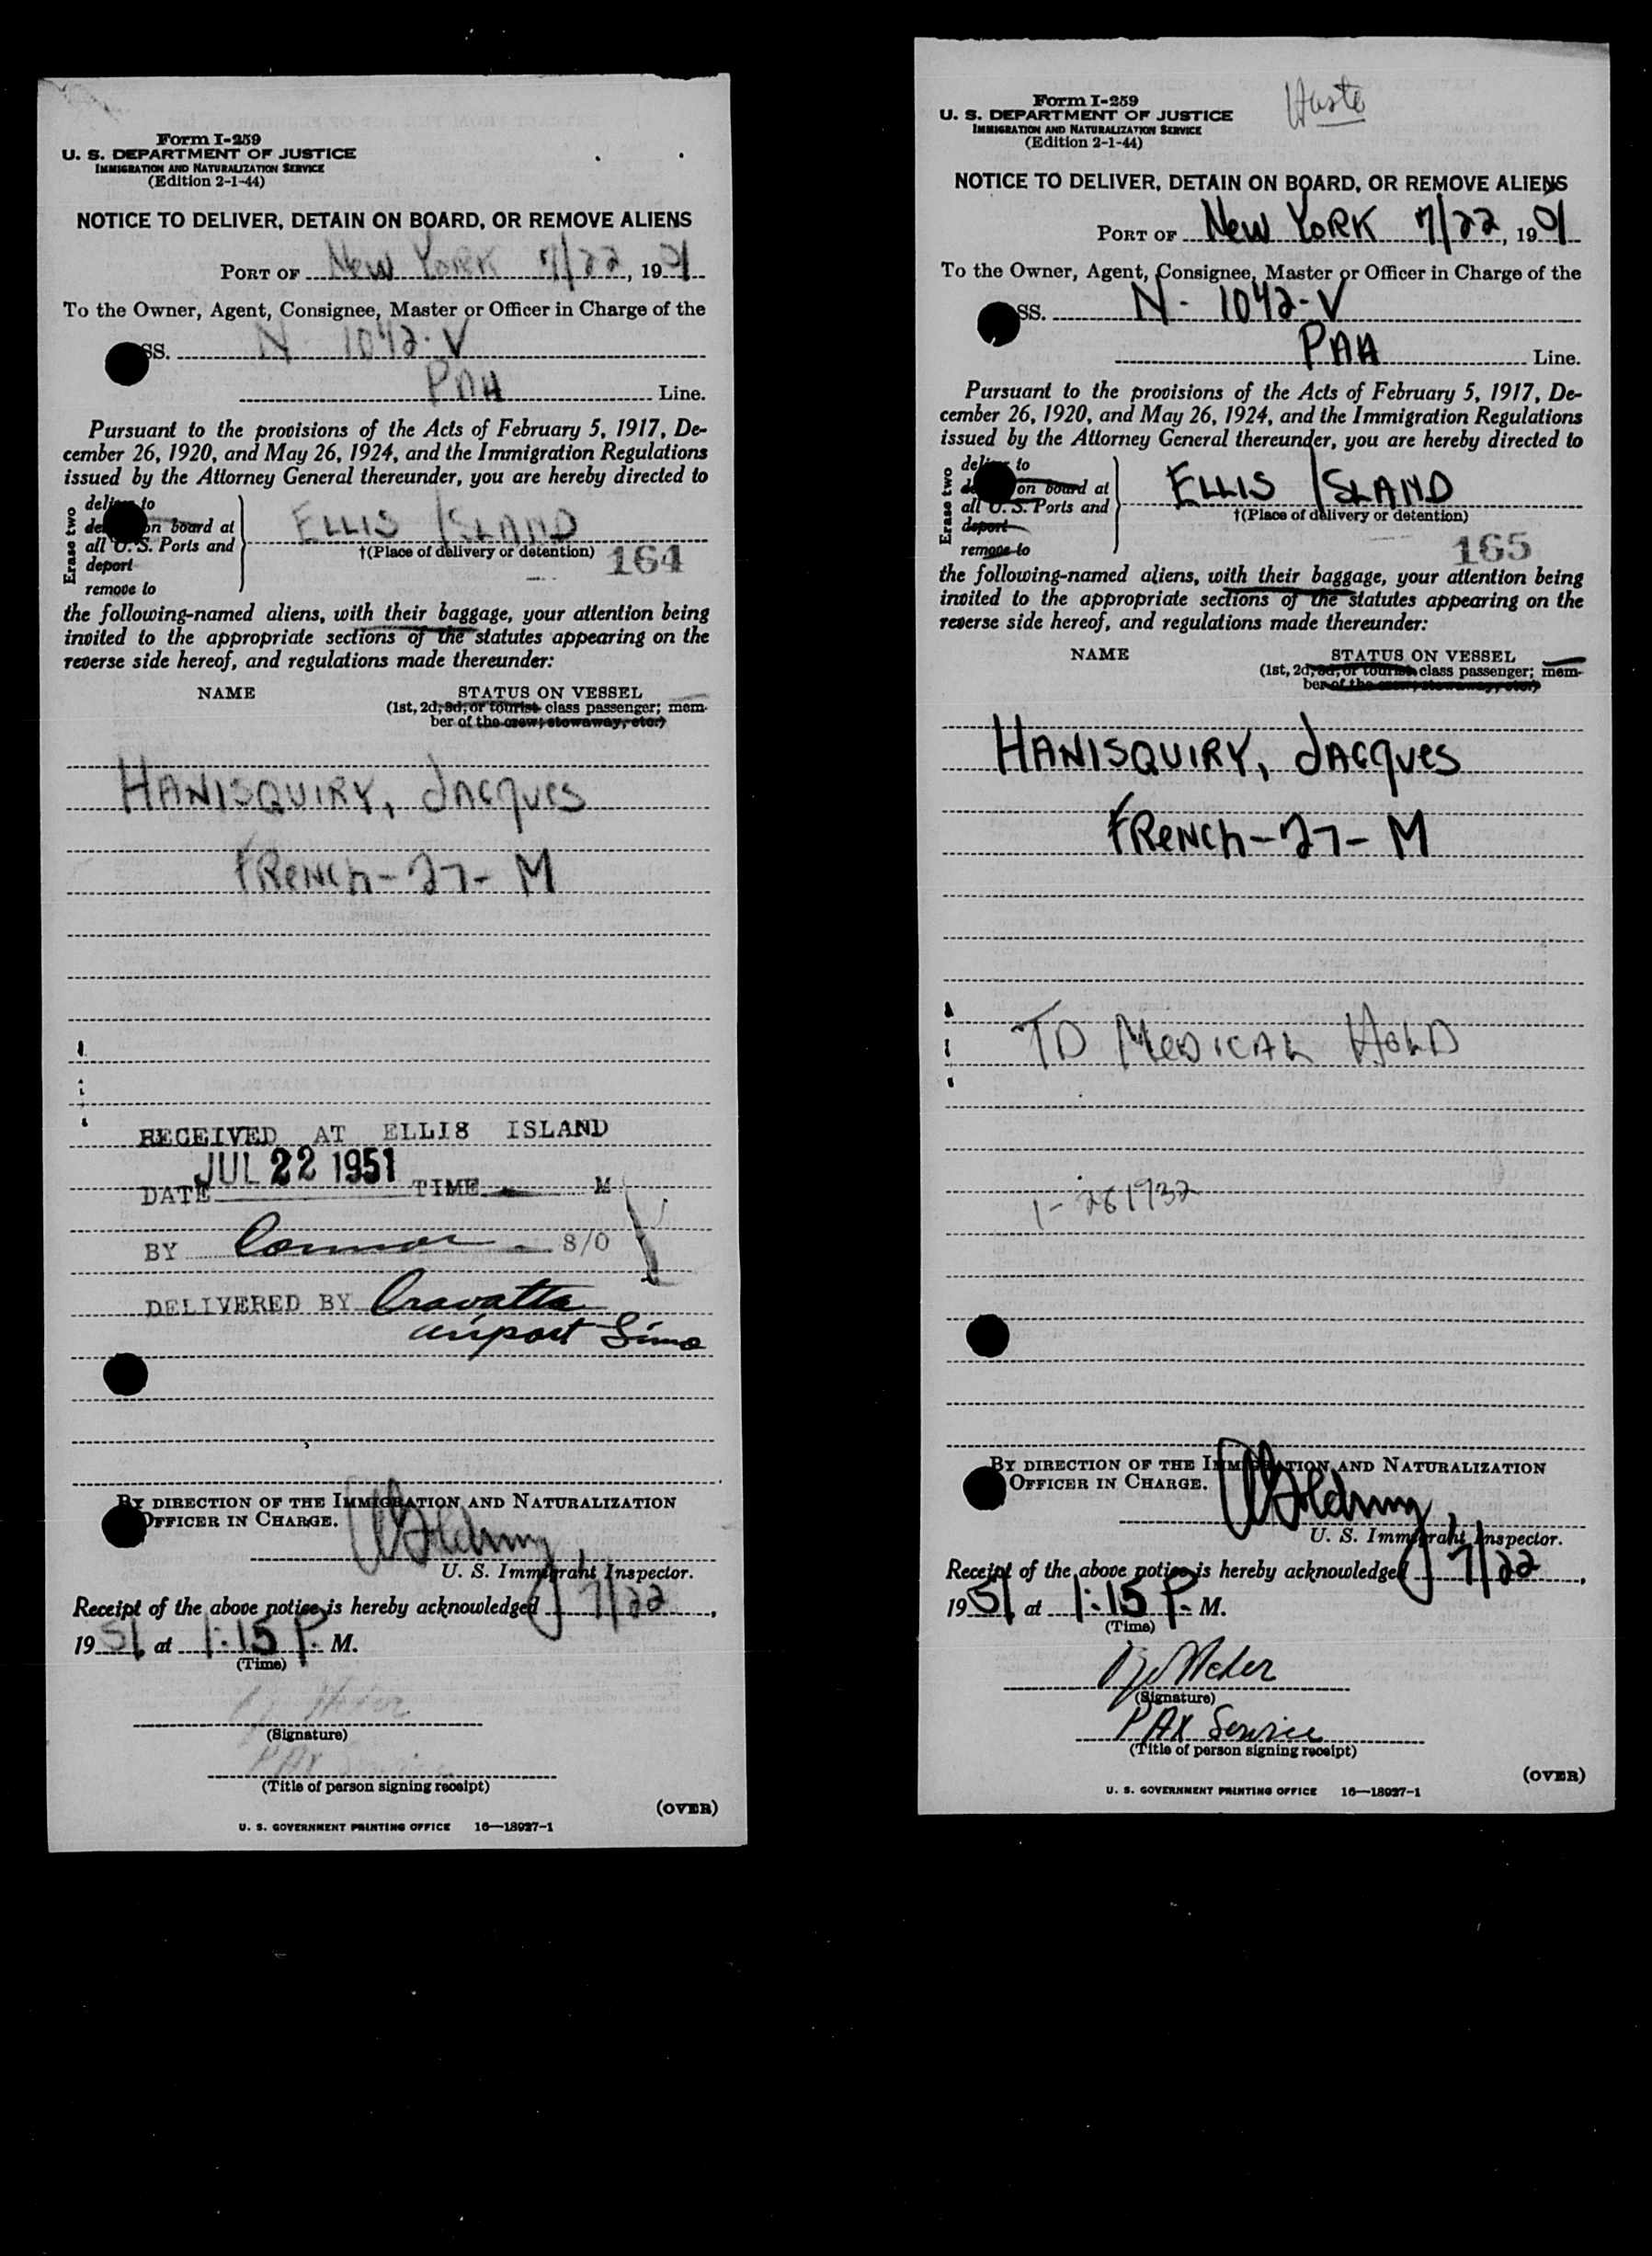 Form I-259
U. S. DEPARTMENT OF JUSTICE
IMMIGRATION AND NATURALIZATION SERVICE
(Edition 2-1-44)
NOTICE TO DELIVER, DETAIN ON BOARD, OR REMOVE ALIENS
PORT OF New YORK 7/22, 1951
To the Owner, Agent, Consignee, Master or Officer in Charge of the
SS. N-1042-V
PAA Line.
Pursuant to the provisions of the Acts of February 5, 1917, De-
cember 26, 1920, and May 26, 1924, and the Immigration Regulations
issued by the Attorney General thereunder, you are hereby directed to
Erase two
deliver to
on board at
all U. S. Ports and
deport
remove to
ELLIS ISLAND
†(Place of delivery or detention)
164
the following-named aliens, with their baggage, your attention being
invited to the appropriate sections of the statutes appearing on the
reverse side hereof, and regulations made thereunder:
NAME STATUS ON VESSEL
(1st, 2d, 3d, or tourist class passenger; mem-
ber of the crew; stowaway, etc.)
HANISQUIRY, JACques
FRENCh-27-M
RECEIVED AT ELLIS ISLAND
JUL 22 1951
DATE TIME M
BY Connor S/O
DELIVERED BY Cravatta
airport Limo
BY DIRECTION OF THE IMMIGRATION AND NATURALIZATION
OFFICER IN CHARGE.
U. S. Immigrant Inspector.
Receipt of the above notice is hereby acknowledged 7/22,
1951 at 1:15 P. M.
(Time)
(Signature)
PAX Service
(Title of person signing receipt)
(OVER)
U. S. GOVERNMENT PRINTING OFFICE 16—18027-1
Form I-259
U. S. DEPARTMENT OF JUSTICE
IMMIGRATION AND NATURALIZATION SERVICE
(Edition 2-1-44)
NOTICE TO DELIVER, DETAIN ON BOARD, OR REMOVE ALIENS
PORT OF New YORK 7/22, 1951
To the Owner, Agent, Consignee, Master or Officer in Charge of the
SS. N-1042-V
PAA Line.
Pursuant to the provisions of the Acts of February 5, 1917, De-
cember 26, 1920, and May 26, 1924, and the Immigration Regulations
issued by the Attorney General thereunder, you are hereby directed to
Erase two
deliver to
on board at
all U. S. Ports and
deport
remove to
ELLIS ISLAND
†(Place of delivery or detention)
165
the following-named aliens, with their baggage, your attention being
invited to the appropriate sections of the statutes appearing on the
reverse side hereof, and regulations made thereunder:
NAME STATUS ON VESSEL
(1st, 2d, 3d, or tourist class passenger; mem-
ber of the crew; stowaway, etc.)
HANISQUIRY, JACques
FRENCh-27-M
TD MEDICAL HOLD
1-261932
BY DIRECTION OF THE IMMIGRATION AND NATURALIZATION
OFFICER IN CHARGE.
U. S. Immigrant Inspector.
Receipt of the above notice is hereby acknowledged 7/22,
1951 at 1:15 P. M.
(Time)
(Signature)
PAX Service
(Title of person signing receipt)
(OVER)
U. S. GOVERNMENT PRINTING OFFICE 16—18027-1